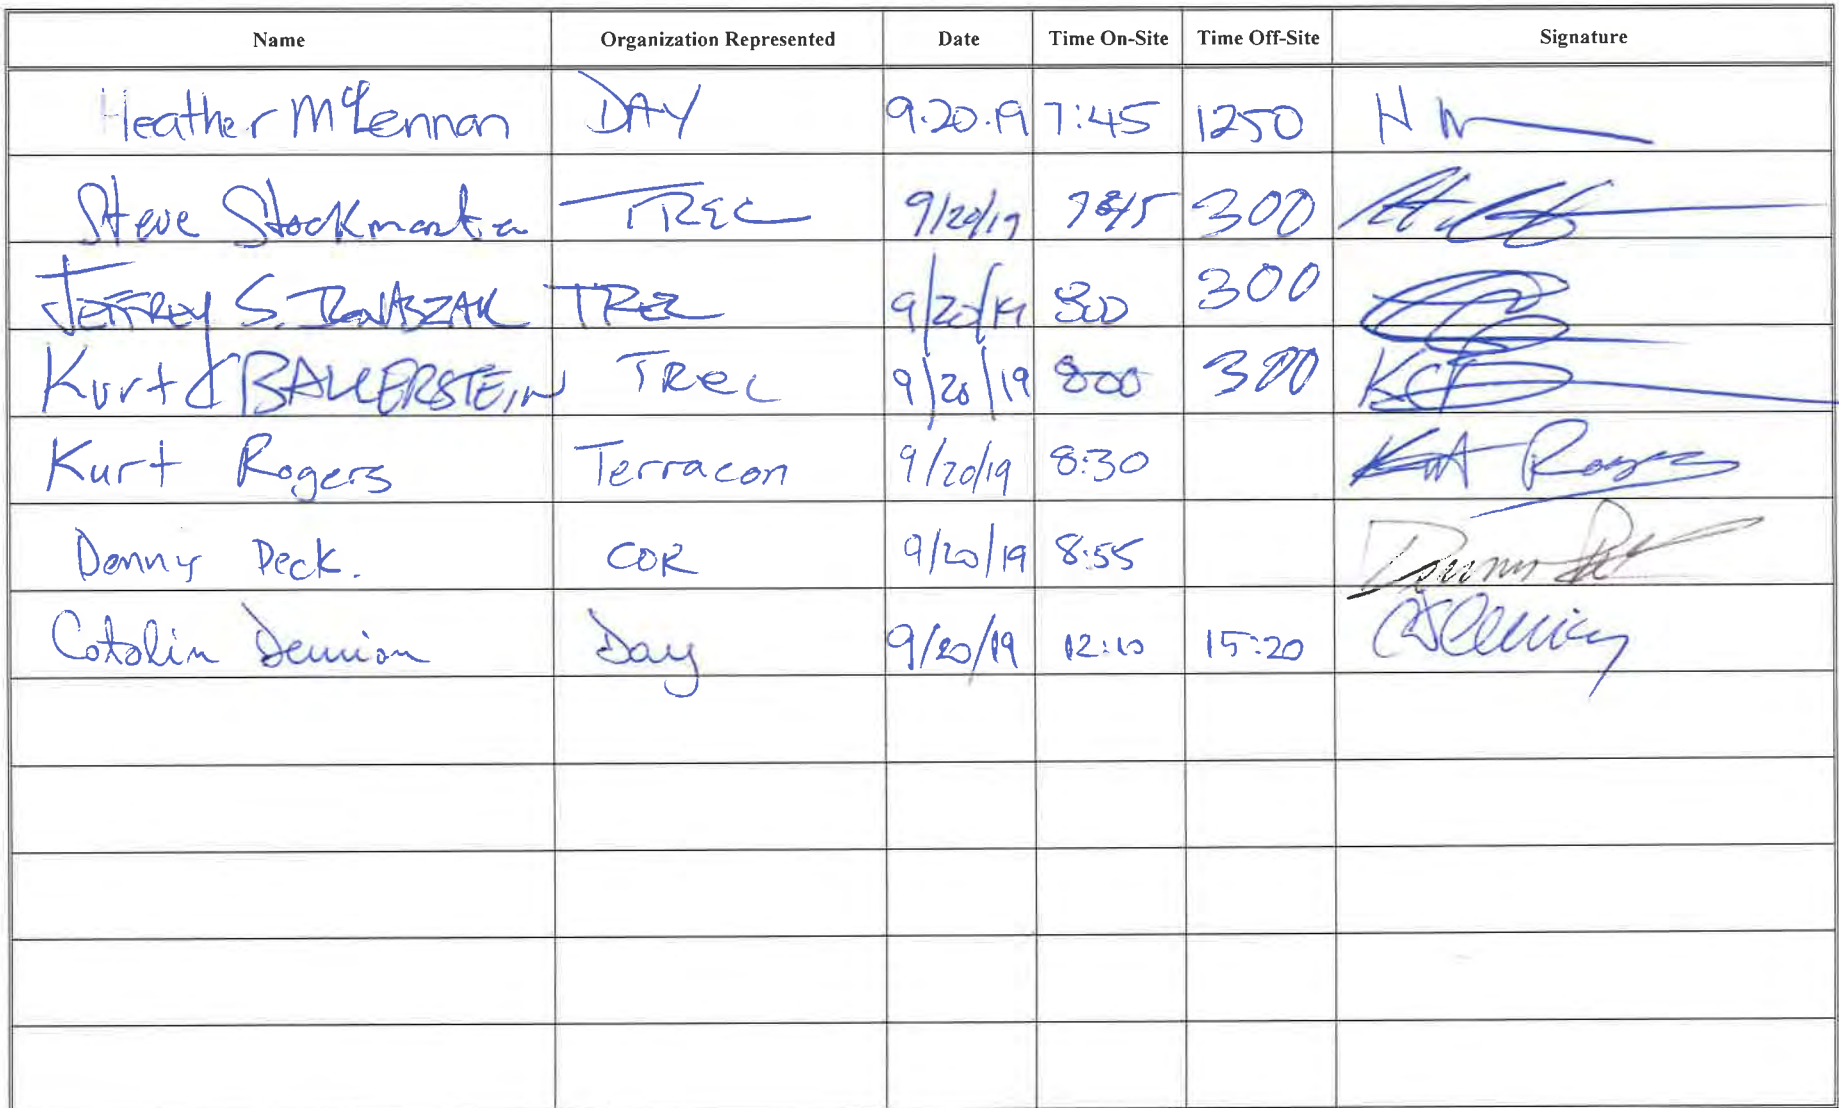 Name Organization Represented Date Time On-Site Time Off-Site Signature
Heather McLennon DAY 9.20.19 7:45 1250
Steve TREC 9/20/19 300
JEFFREY S. TREC 9/20/19 800 300
Kurt BALLERSTEIN TREC 9/20/19 800 300
Kurt Rogers Terracon 9/20/19 8:30 Kurt Rogers
Denny Peck. COR 9/20/19 8:55
Catalin Demian Day 9/20/19 12:10 15:20